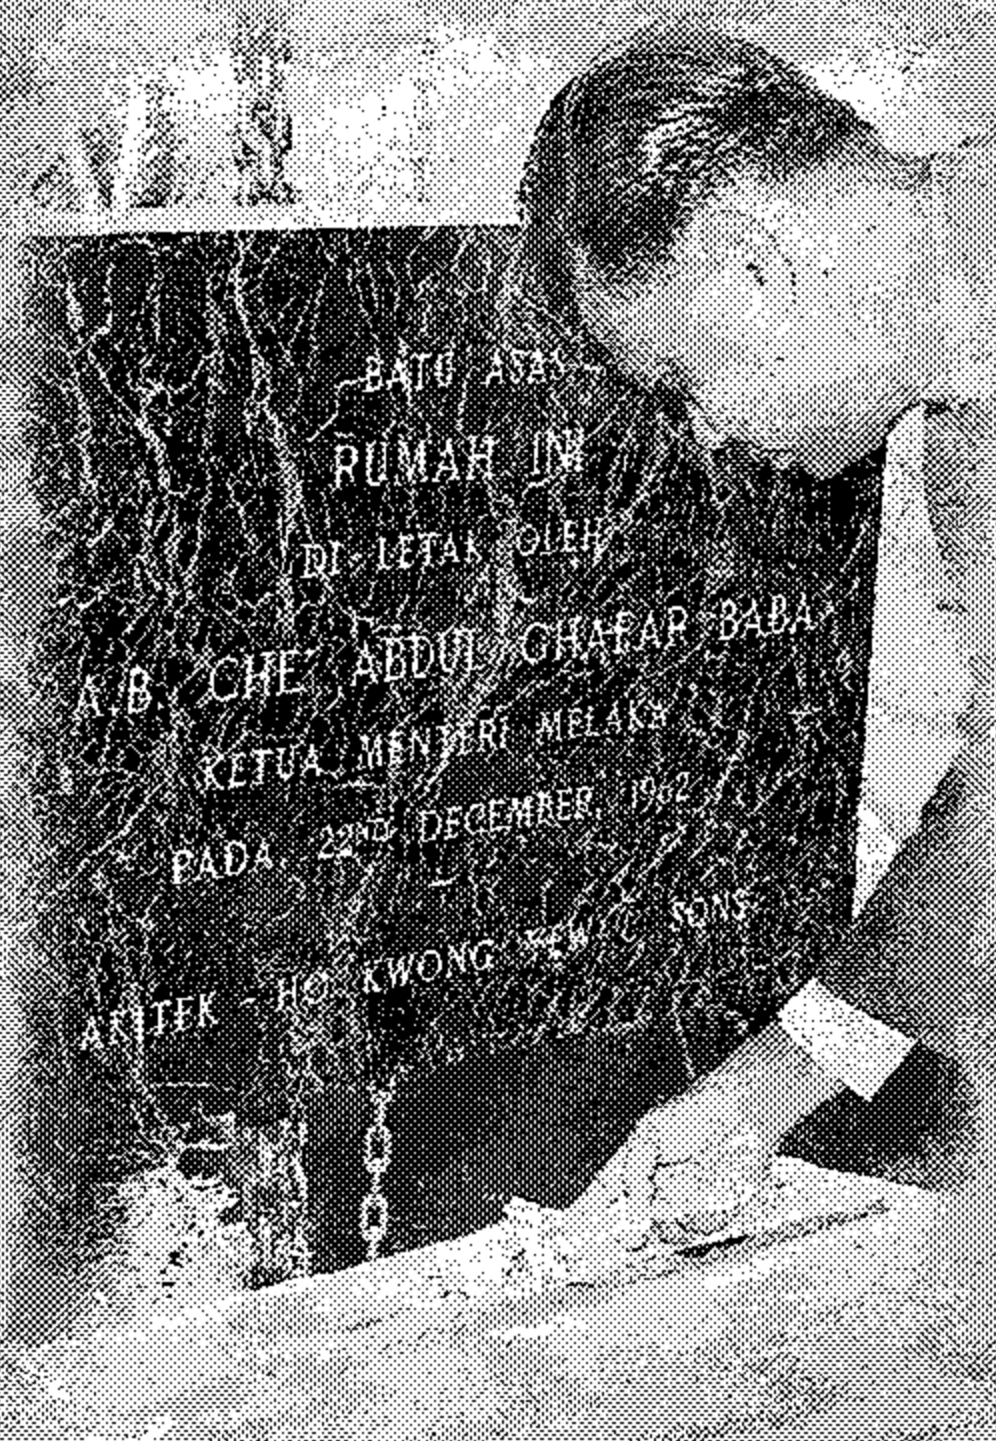 BATU ASAS
RUMAH INI
DI-LETAK OLEH
A.B. CHE' ABDUL GHAFAR BABA
KETUA MENTERI MELAKA
PADA 22ND DECEMBER, 1962
ARITEK - HO KWONG YEW & SONS